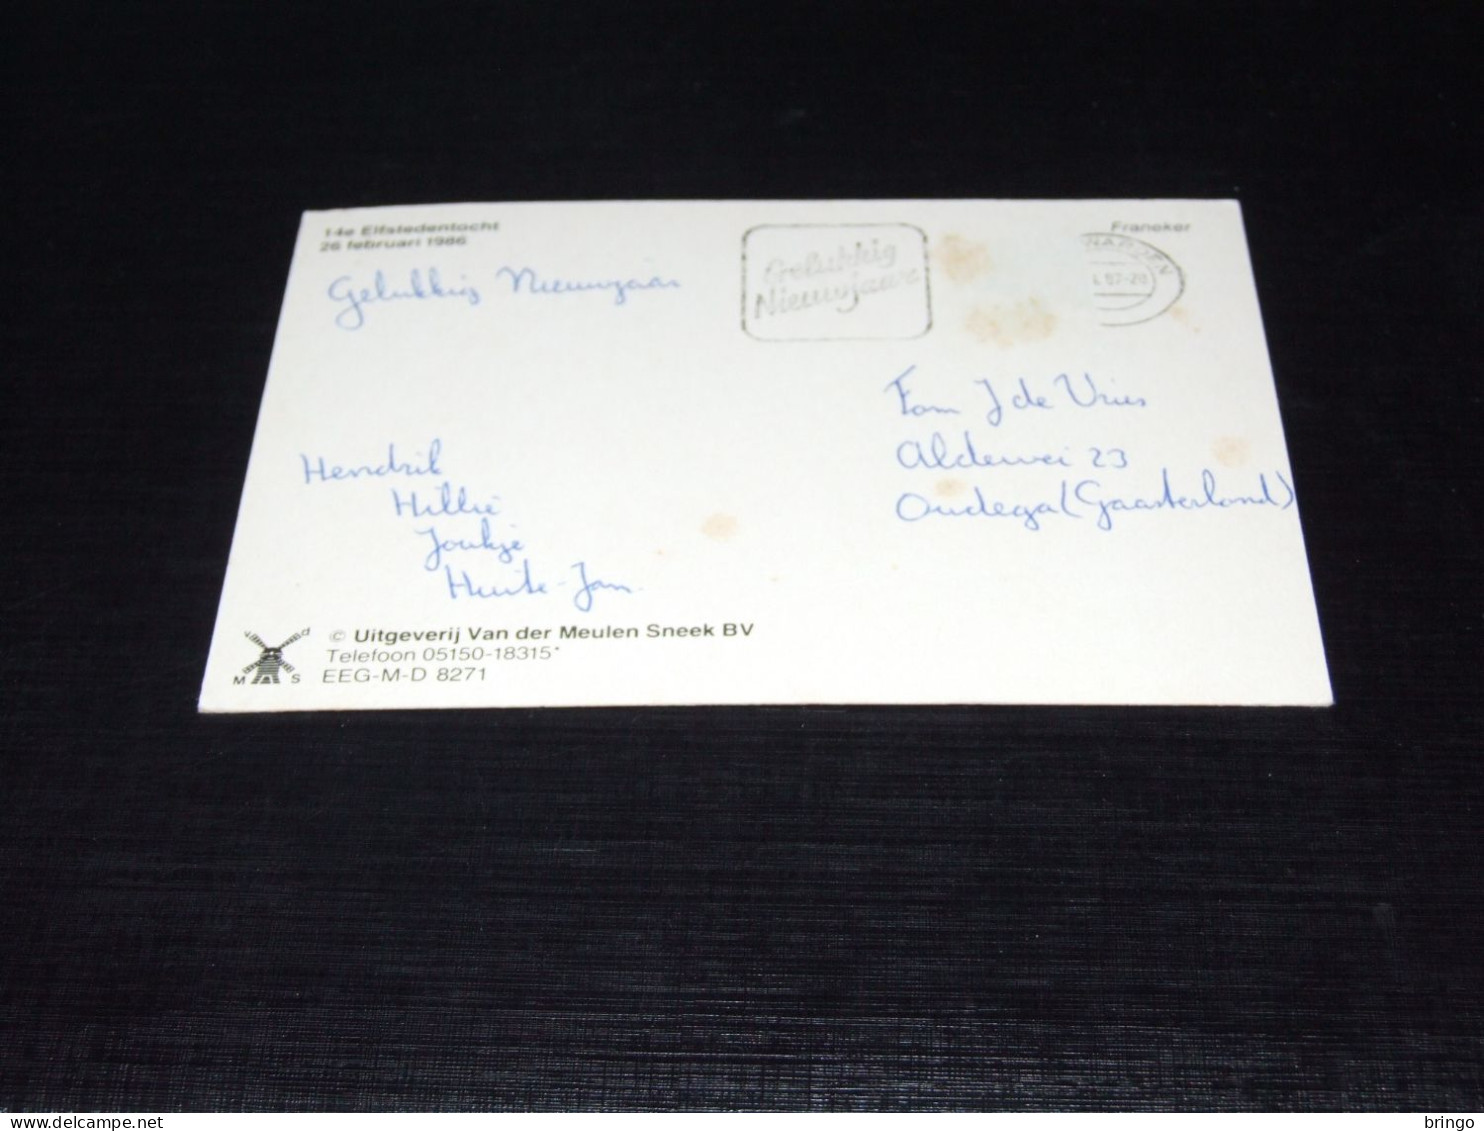 14e Elfstedentocht
26 februari 1986
Franeker
Gelukkig Nieuwjaar
Gelukkig
Nieuwjaar
Fam J de Vries
Aldewei 23
Oudega (Gaasterland)
Hendrik
Hillie
Joukje
Huite-Jan
© Uitgeverij Van der Meulen Sneek BV
Telefoon 05150-18315*
EEG-M-D 8271
M d S
bringo